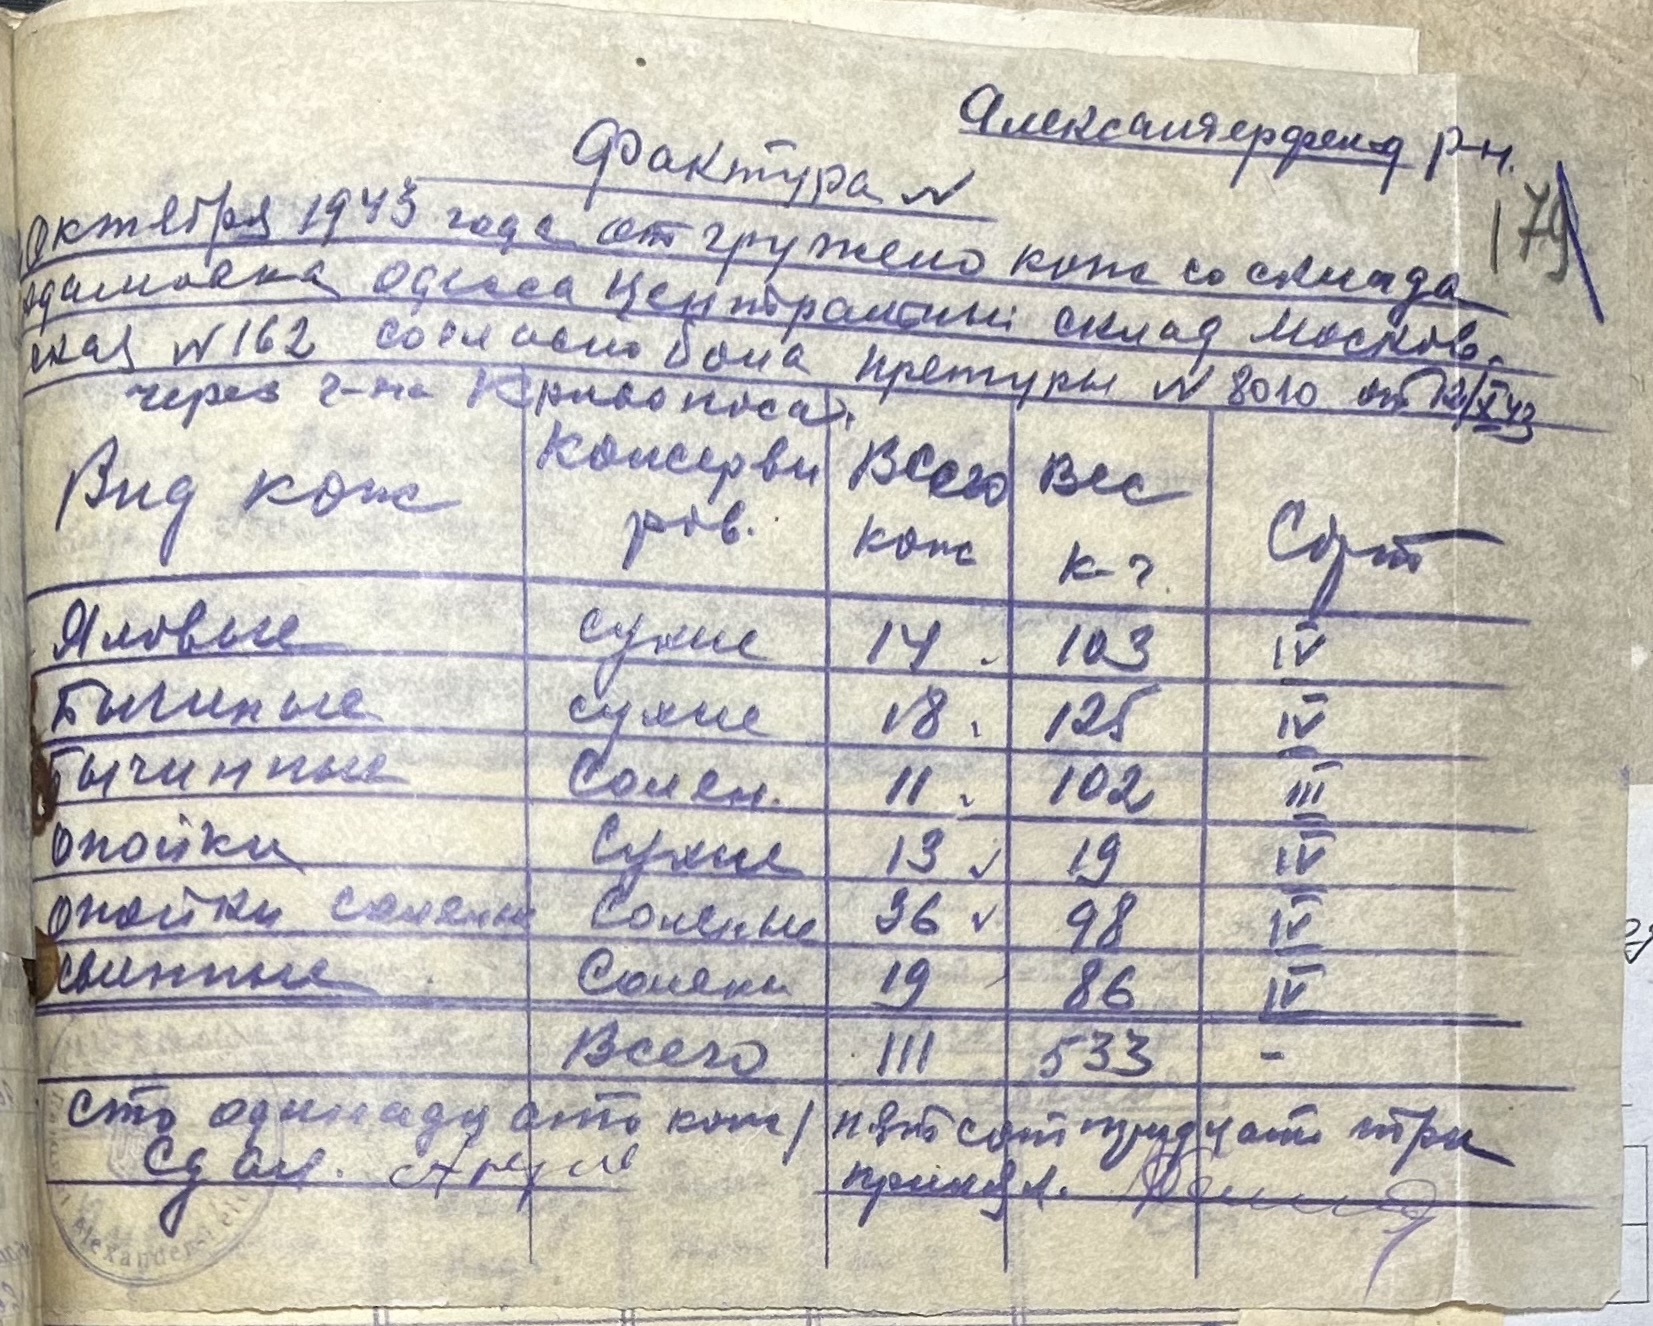 Александерфельд р-н.
179
Фактура №
Октября 1943 года отгружено кож со склада
адамовка Одесса Центральный склад Москов-
ская №162 согласно бона претуры №8010 от 12/X 43
через г-на Кривоноса.
Вид кож Консерви Всего Вес Сорт
ров. кож к-г.
Яловые сухие 14 103 IV
Бычиные сухие 18 125 IV
Бычинные Солен. 11 102 III
опойки Сухие 13 ✓ 19 IV
опойки соленые Соленые 36 ✓ 98 IV
свинные Солены 19 86 IV
Всего 111 533 -
сто одинадцать кож/ пятьсот тридцать три
Сдал. принял.
Alexander